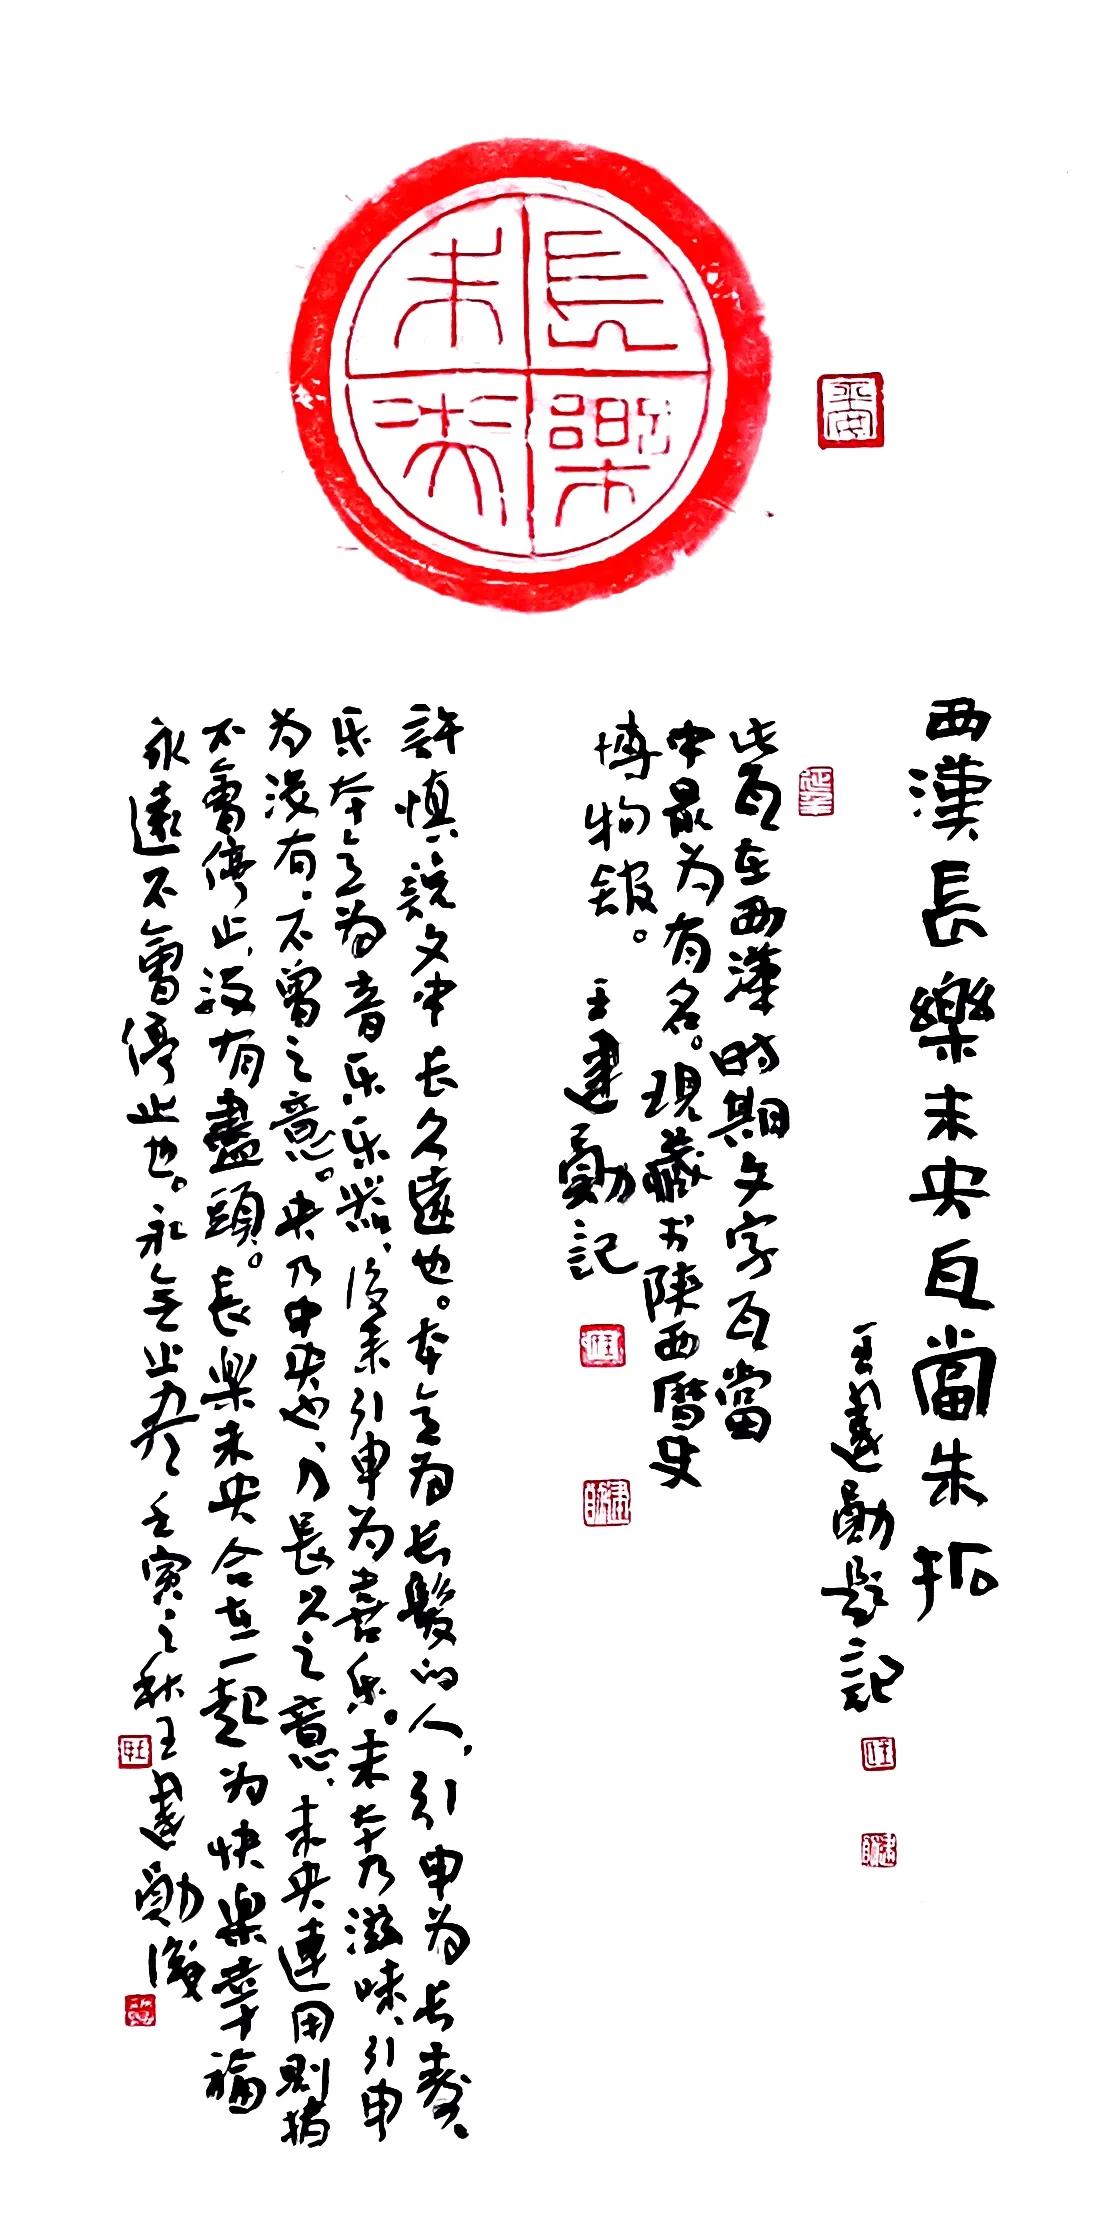 長樂
未央
平安
西漢長樂未央瓦當朱拓
王建勳題記
延年
此瓦在西漢時期文字瓦當
中最为有名。現藏於陕西歷史
博物舘。
王建勳記
許慎説文中长久遠也。本意为长髮的人，引申为长寿。
乐本意为音乐乐器、後来引申为喜乐。未本乃滋味、引申
为没有。不曾之意。央乃中央也、乃長久之意、未央連用則指
不會停止，没有盡頭。長樂未央合在一起为快樂幸福
永遠不會停止也。永無止尽壬寅之秋王建勳識